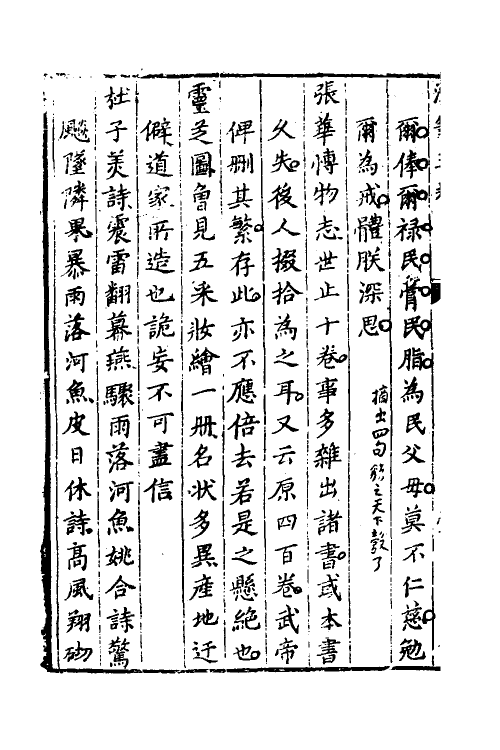 爾俸爾祿民膏民脂為民父母莫不仁慈勉
爾為戒體朕深思
摘出四句
天下
張華博物志世止十卷事多雜出諸書或本書
久失後人掇拾為之耳又云原四百卷武帝
俾刪其繁存此亦不應倍去若是之懸絕也
靈芝圖曾見五采妝繪一冊名狀多異產地迂
僻道家所造也詭妄不可盡信
杜子美詩震雷翻幕燕驟雨落河魚姚合詩驚
飈墜隣果暴雨落河魚皮日休詩高風翔砌